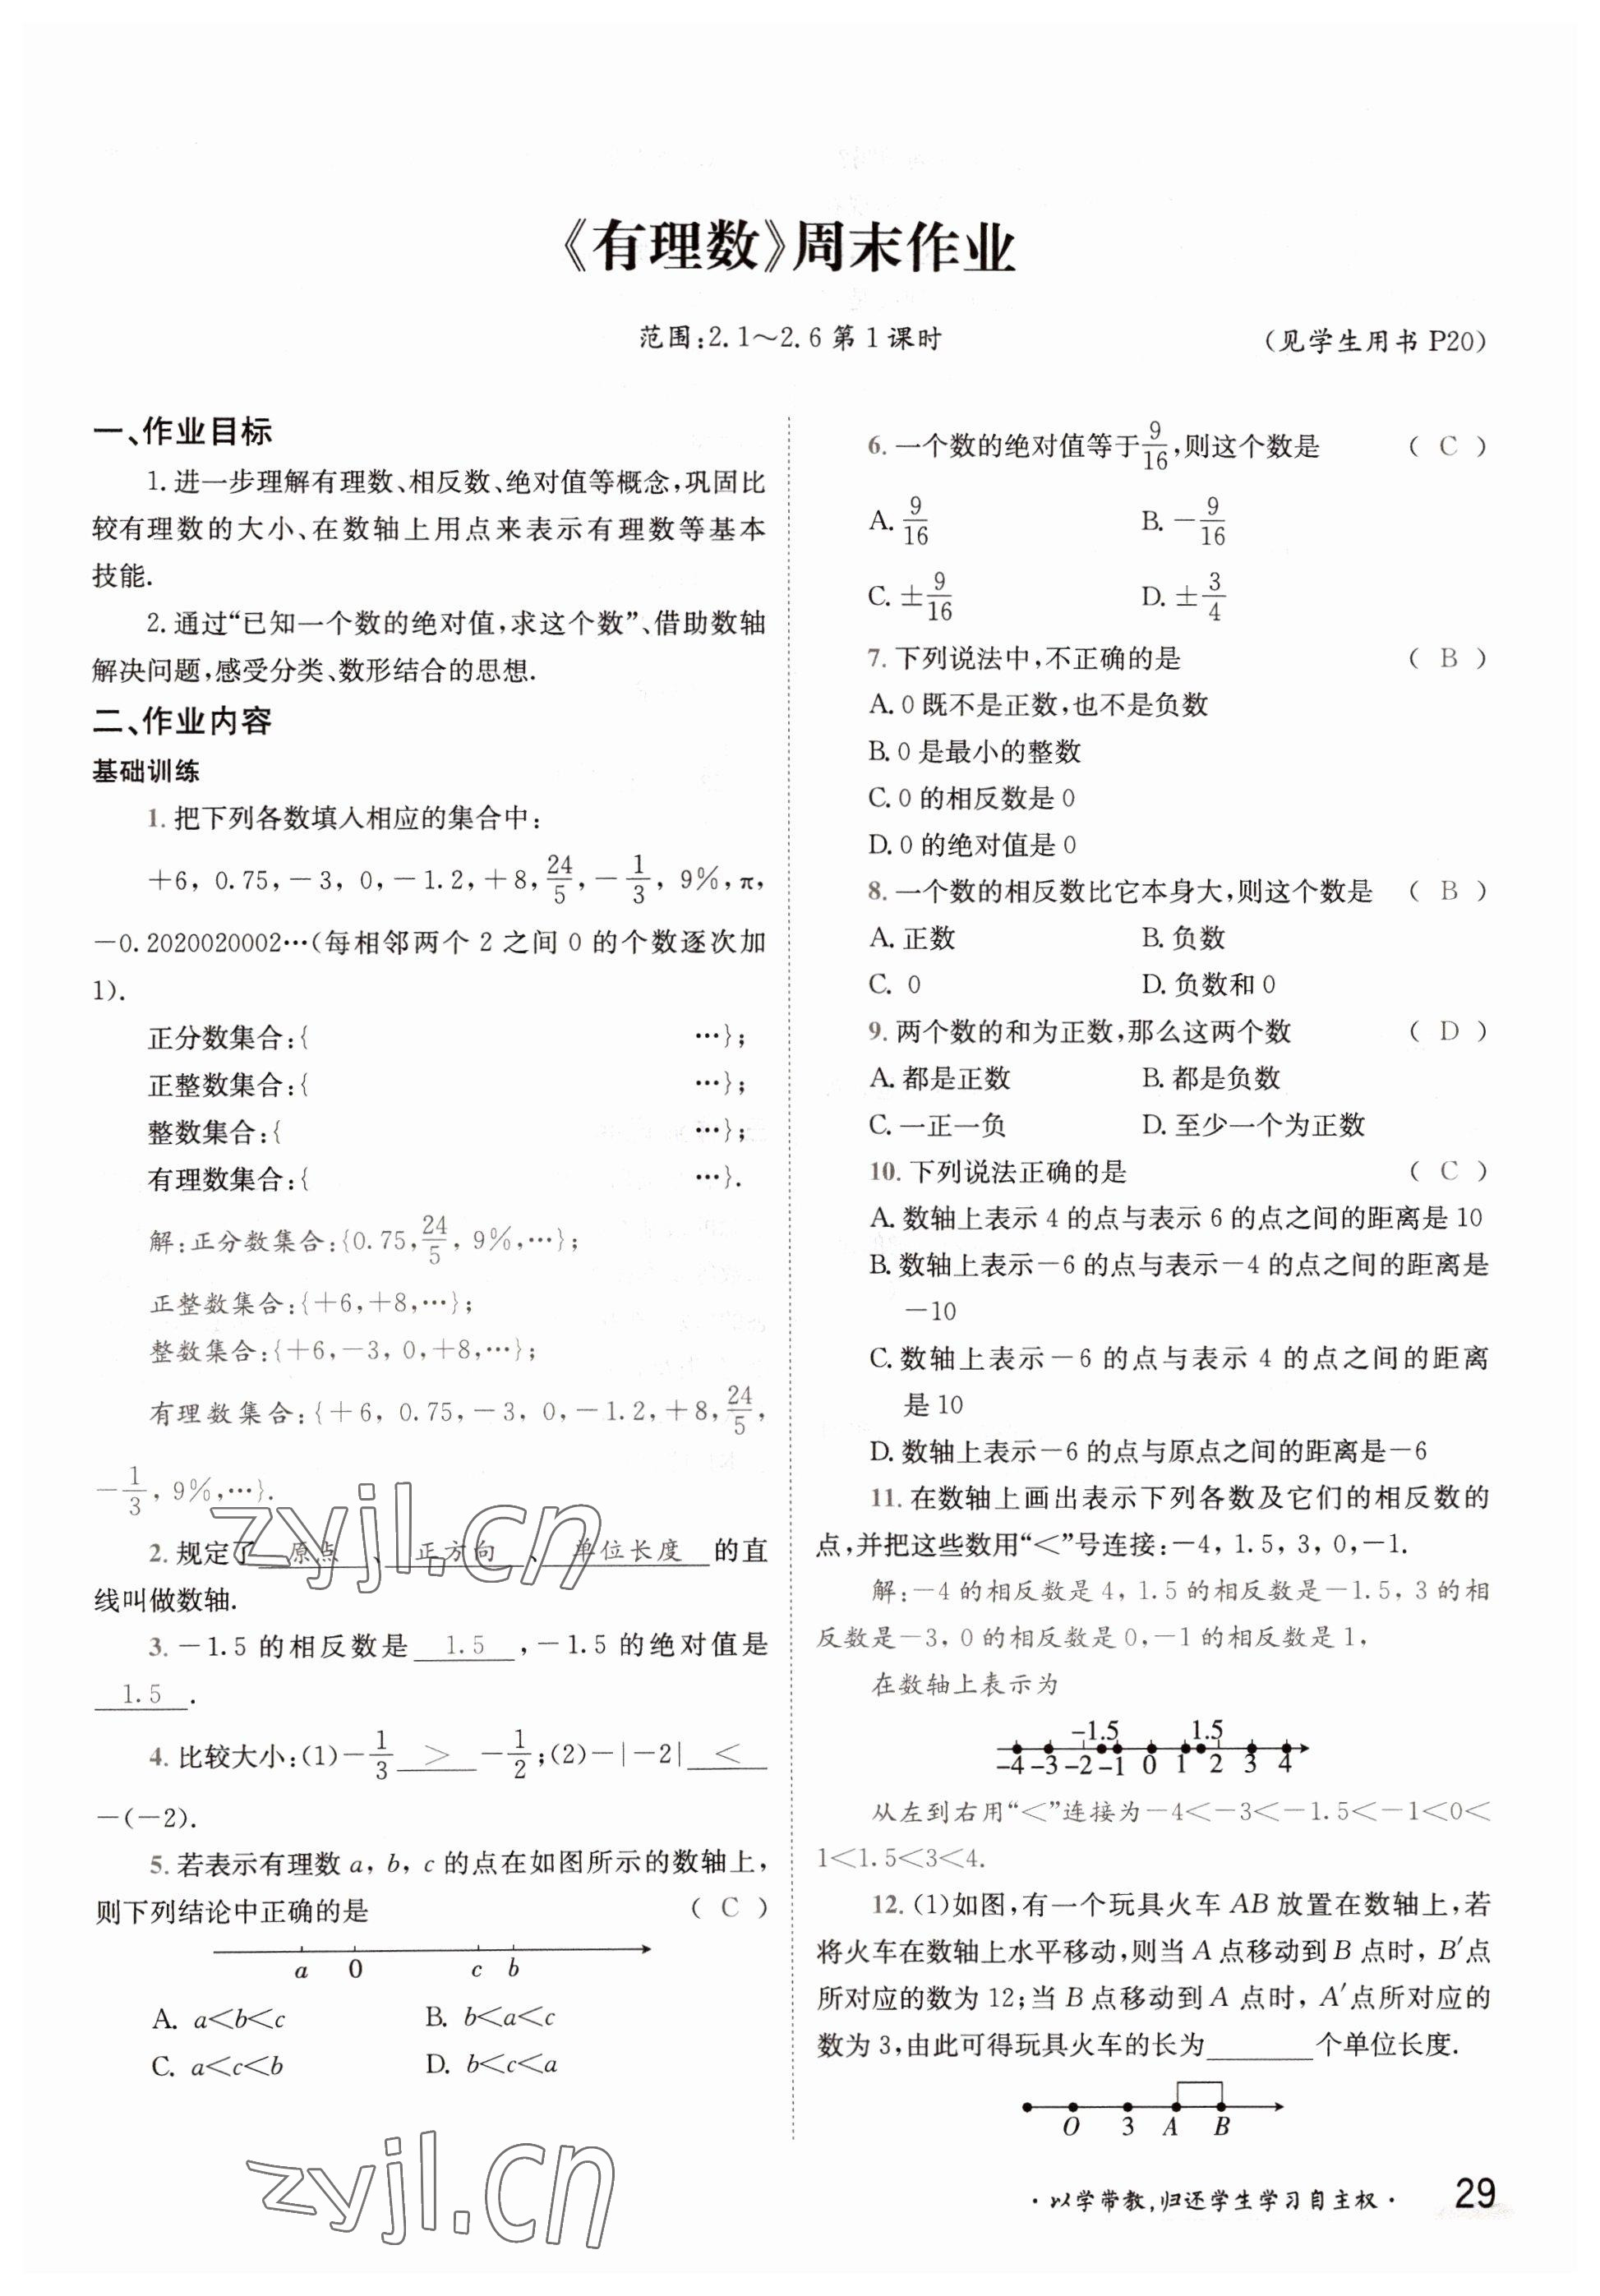 《有理数》周末作业
范围:2.1～2.6第1课时
(见学生用书P20)
一、作业目标
1.进一步理解有理数、相反数、绝对值等概念,巩固比
较有理数的大小、在数轴上用点来表示有理数等基本
技能.
2.通过“已知一个数的绝对值,求这个数”、借助数轴
解决问题,感受分类、数形结合的思想.
二、作业内容
基础训练
1.把下列各数填入相应的集合中:
+6, 0.75,-3, 0,-1.2,+8,24/5,-1/3, 9%,π,
-0.2020020002…(每相邻两个2之间0的个数逐次加
1).
正分数集合:{ …};
正整数集合:{ …};
整数集合:{ …};
有理数集合:{ …}.
解:正分数集合:{0.75,24/5, 9%,…};
正整数集合:{+6,+8,…};
整数集合:{+6,-3, 0,+8,…};
有理数集合:{+6, 0.75,-3, 0,-1.2,+8,24/5,
-1/3, 9%,…}.
2.规定了 原点 、 正方向 、 单位长度 的直
线叫做数轴.
3.-1.5的相反数是 1.5 ,-1.5的绝对值是
1.5 .
4.比较大小:(1)-1/3 > -1/2;(2)-|-2| <
-(-2).
5.若表示有理数a, b, c的点在如图所示的数轴上,
则下列结论中正确的是 ( C )
a 0 c b
A. a<b<c B. b<a<c
C. a<c<b D. b<c<a
6.一个数的绝对值等于9/16,则这个数是 ( C )
A. 9/16 B. -9/16
C. ±9/16 D. ±3/4
7.下列说法中,不正确的是 ( B )
A. 0既不是正数,也不是负数
B. 0是最小的整数
C. 0的相反数是0
D. 0的绝对值是0
8.一个数的相反数比它本身大,则这个数是 ( B )
A. 正数 B. 负数
C. 0 D. 负数和0
9.两个数的和为正数,那么这两个数 ( D )
A. 都是正数 B. 都是负数
C. 一正一负 D. 至少一个为正数
10.下列说法正确的是 ( C )
A. 数轴上表示4的点与表示6的点之间的距离是10
B. 数轴上表示-6的点与表示-4的点之间的距离是
-10
C. 数轴上表示-6的点与表示4的点之间的距离
是10
D. 数轴上表示-6的点与原点之间的距离是-6
11.在数轴上画出表示下列各数及它们的相反数的
点,并把这些数用“<”号连接:-4, 1.5, 3, 0,-1.
解:-4的相反数是4, 1.5的相反数是-1.5, 3的相
反数是-3, 0的相反数是0,-1的相反数是1,
在数轴上表示为
-1.5 1.5
-4 -3 -2 -1 0 1 2 3 4
从左到右用“<”连接为-4<-3<-1.5<-1<0<
1<1.5<3<4.
12.(1)如图,有一个玩具火车AB放置在数轴上,若
将火车在数轴上水平移动,则当A点移动到B点时, B′点
所对应的数为12;当B点移动到A点时, A′点所对应的
数为3,由此可得玩具火车的长为________个单位长度.
O 3 A B
·以学带教,归还学生学习自主权·
29
zyjl.cn
zyjl.cn